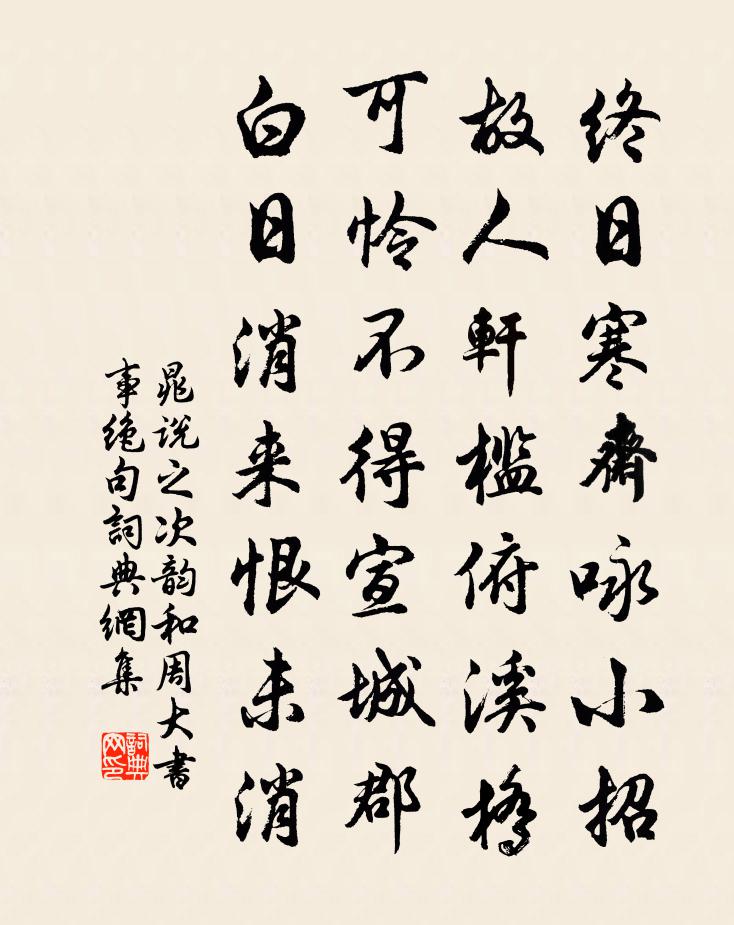 终日寒齋咏小招
故人軒檻俯溪橋
可怜不得宣城郡
白日消来恨未消
晁说之次韵和周大書
事绝句詞典網集
詞典網印